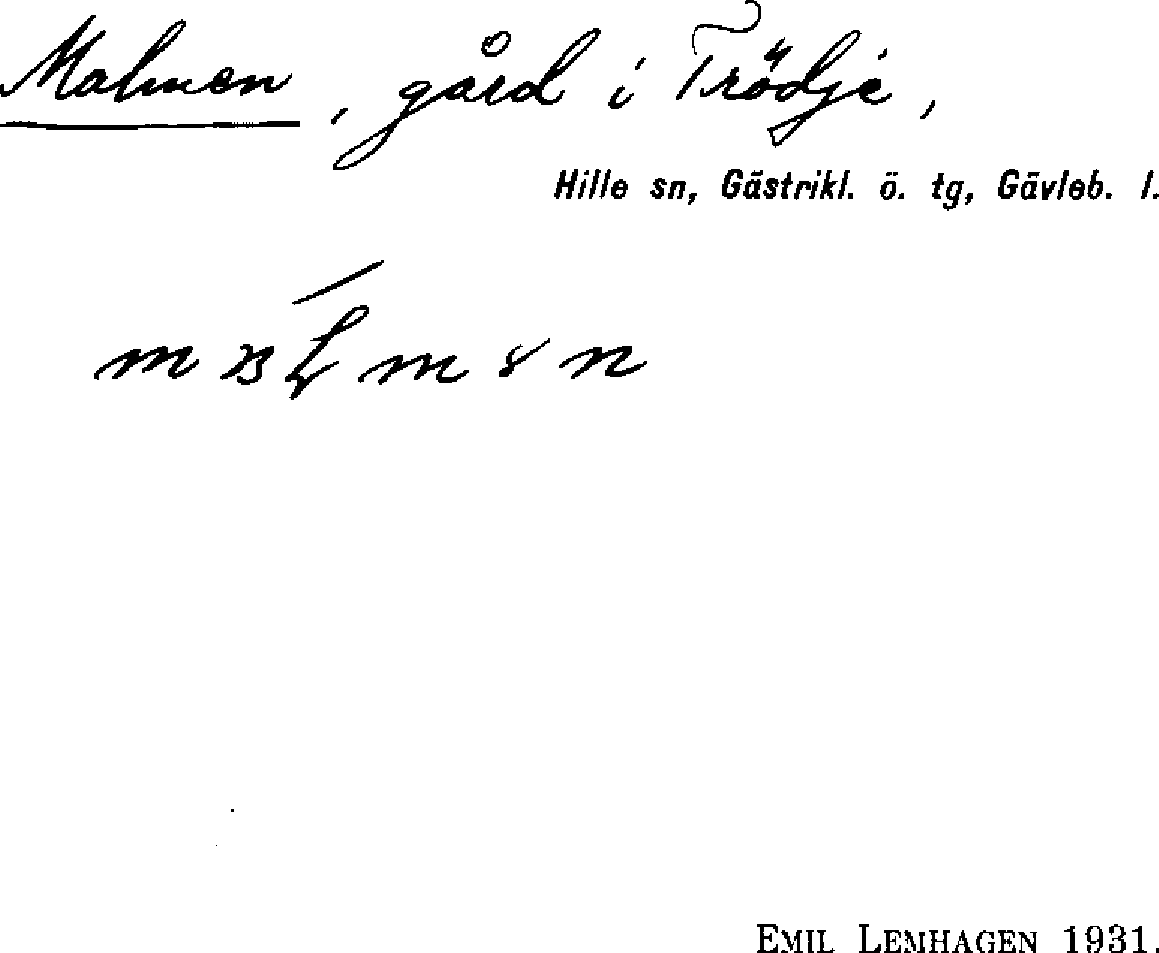 Malmen, gård i Trödje,
Hille sn, Gästrikl. ö. tg, Gävleb. l.
EMIL LEMHAGEN 1931.